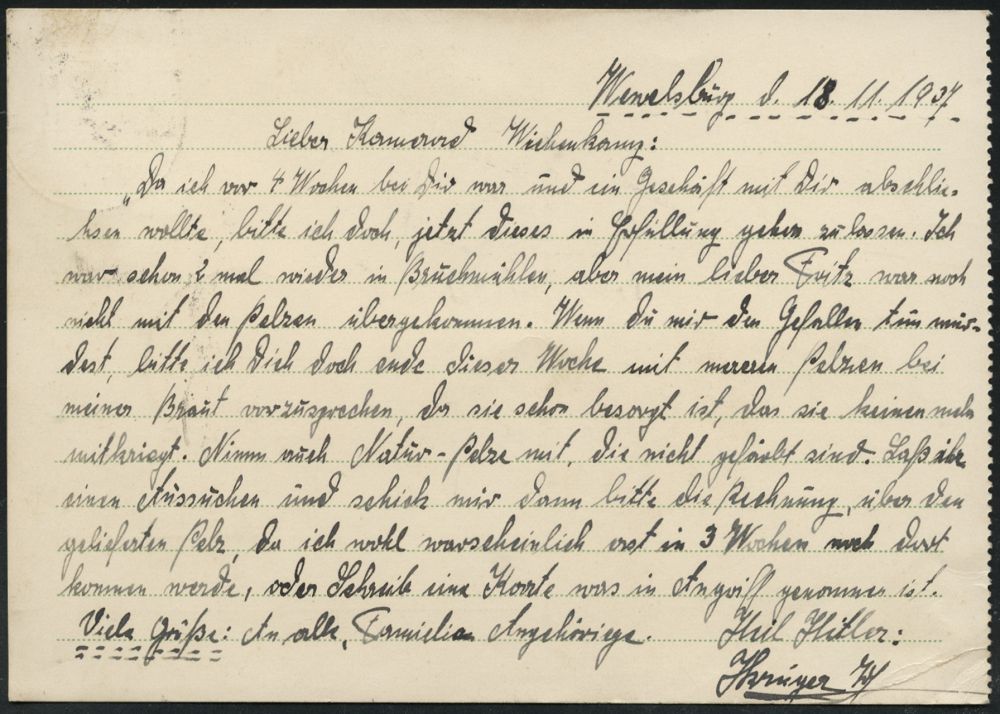 Wewelsburg d. 18. 11. 1937
Lieber Kamerard Wiehenkamp:
"Da ich vor 4 Wochen bei Dir war und ein Geschäft mit Dir abschlie-
hsen wollte, bitte ich doch, jetzt dieses in Erfüllung gehen zu lassen. Ich
war schon 2 mal wieder in Bruchmühlen, aber mein lieber Fritz war noch
nicht mit den Pelzen übergekommen. Wenn du mir den Gefallen tun wür-
dest, bitte ich Dich doch ende dieser Woche mit mereren Pelzen bei
meiner Braut vorzusprechen, da sie schon besorgt ist, das sie keinen mehr
mitkriegt. Nimm auch Natur-Pelze mit, die nicht gefärbt sind. Laß ihr
einen Aussuchen und schick mir dann bitte die Rechnung, über den
gelieferten Pelz, da ich wohl warscheinlich erst in 3 Wochen nach dort
kommen werde, oder Schreib eine Karte was in Angriff genommen ist.
Viele Grüße: An alle, Familien Angehöriege. Heil Hitler: